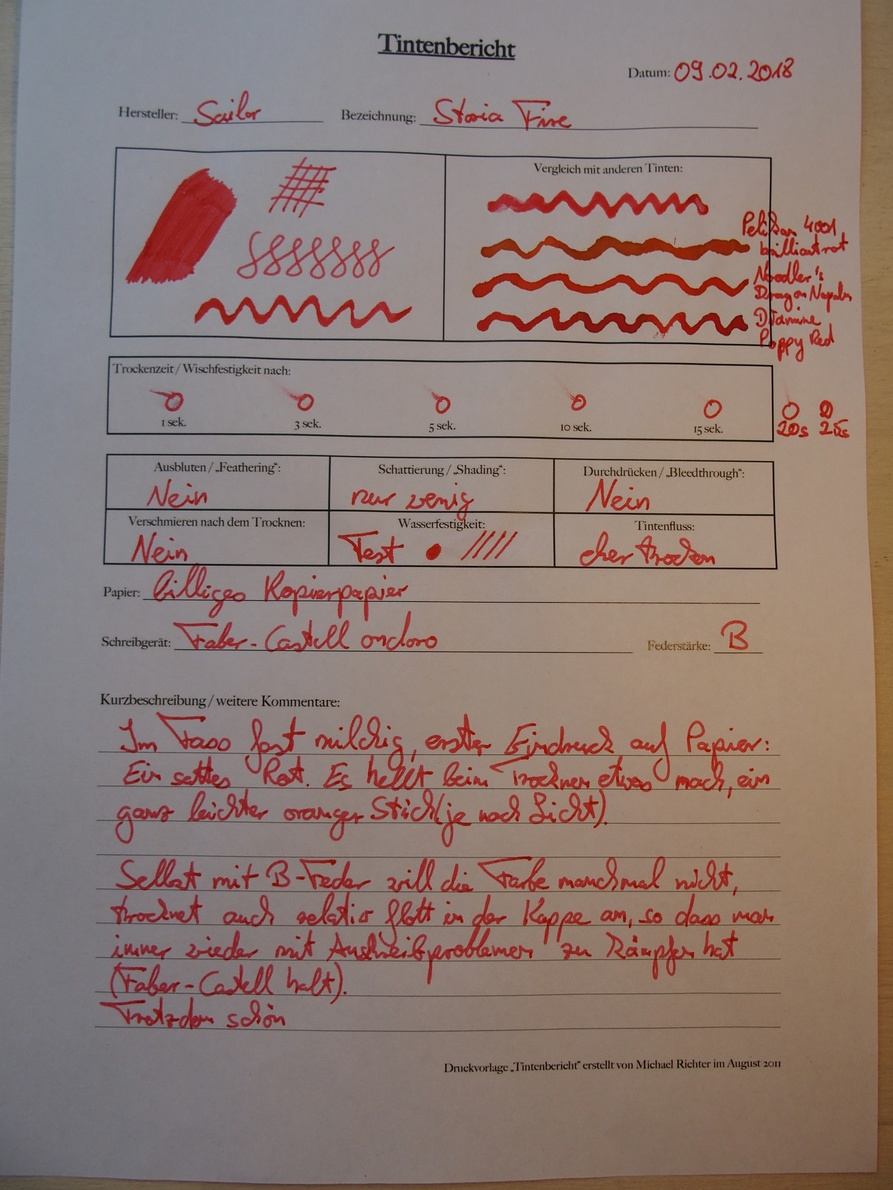 Tintenbericht
Datum: 09.02.2018
Hersteller: Sailor Bezeichnung: Storia Fire
Vergleich mit anderen Tinten:
Pelikan 4001
brillantrot
Noodler's
Dragon Napalm
Diamine
Poppy Red
Trockenzeit / Wischfestigkeit nach:
1 sek. 3 sek. 5 sek. 10 sek. 15 sek. 20s 25s
Ausbluten / „Feathering": Schattierung / „Shading": Durchdrücken / „Bleedthrough":
Nein nur wenig Nein
Verschmieren nach dem Trocknen: Wasserfestigkeit: Tintenfluss:
Nein Test eher trocken
Papier: billiges Kopierpapier
Schreibgerät: Faber-Castell ondoro Federstärke: B
Kurzbeschreibung / weitere Kommentare:
Im Fass fast milchig, erster Eindruck auf Papier:
Ein sattes Rot. Es hellt beim Trocknen etwas nach, ein
ganz leichter oranger Stich (je nach Licht).
Selbst mit B-Feder will die Farbe manchmal nicht,
trocknet auch relativ flott in der Kappe an, so dass man
immer wieder mit Anschreibproblemen zu kämpfen hat
(Faber-Castell halt).
Trotzdem schön
Druckvorlage „Tintenbericht" erstellt von Michael Richter im August 2011